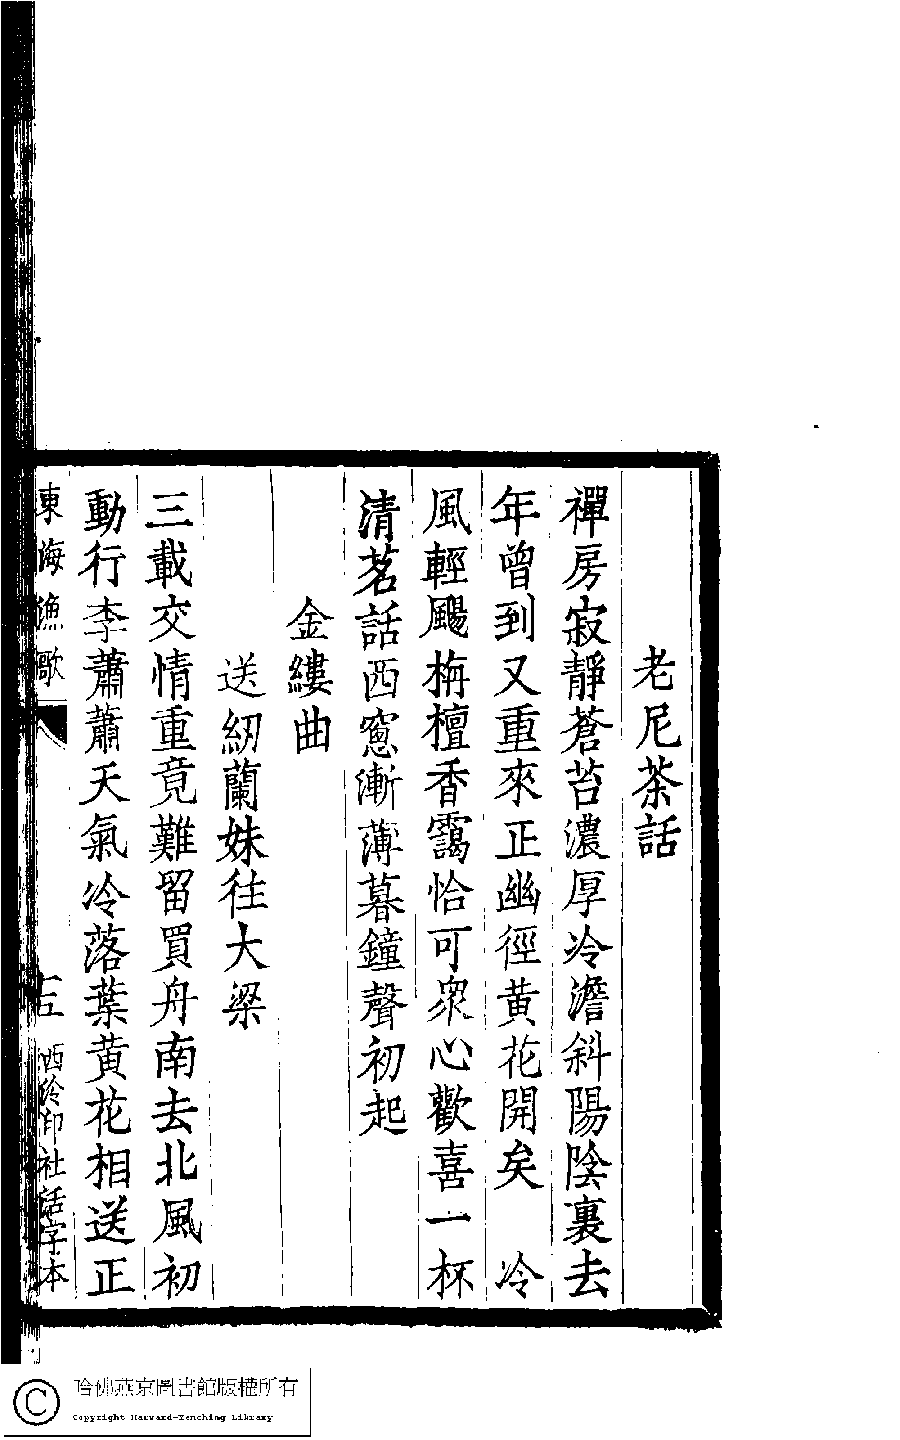 老尼茶話
禪房寂靜蒼苔濃厚冷澹斜陽陰裏去
年曾到又重來正幽徑黄花開矣　冷
風輕颺栴檀香靄恰可衆心歡喜一杯
清茗話西窻漸薄暮鐘聲初起
金縷曲
送紉蘭妹往大梁
三載交情重竟難留買舟南去北風初
動行李蕭蕭天氣冷落葉黄花相送正
東海漁歌
西泠印社活字本
哈佛燕京圖書館版權所有
Copyright Harvard-Yenching Library